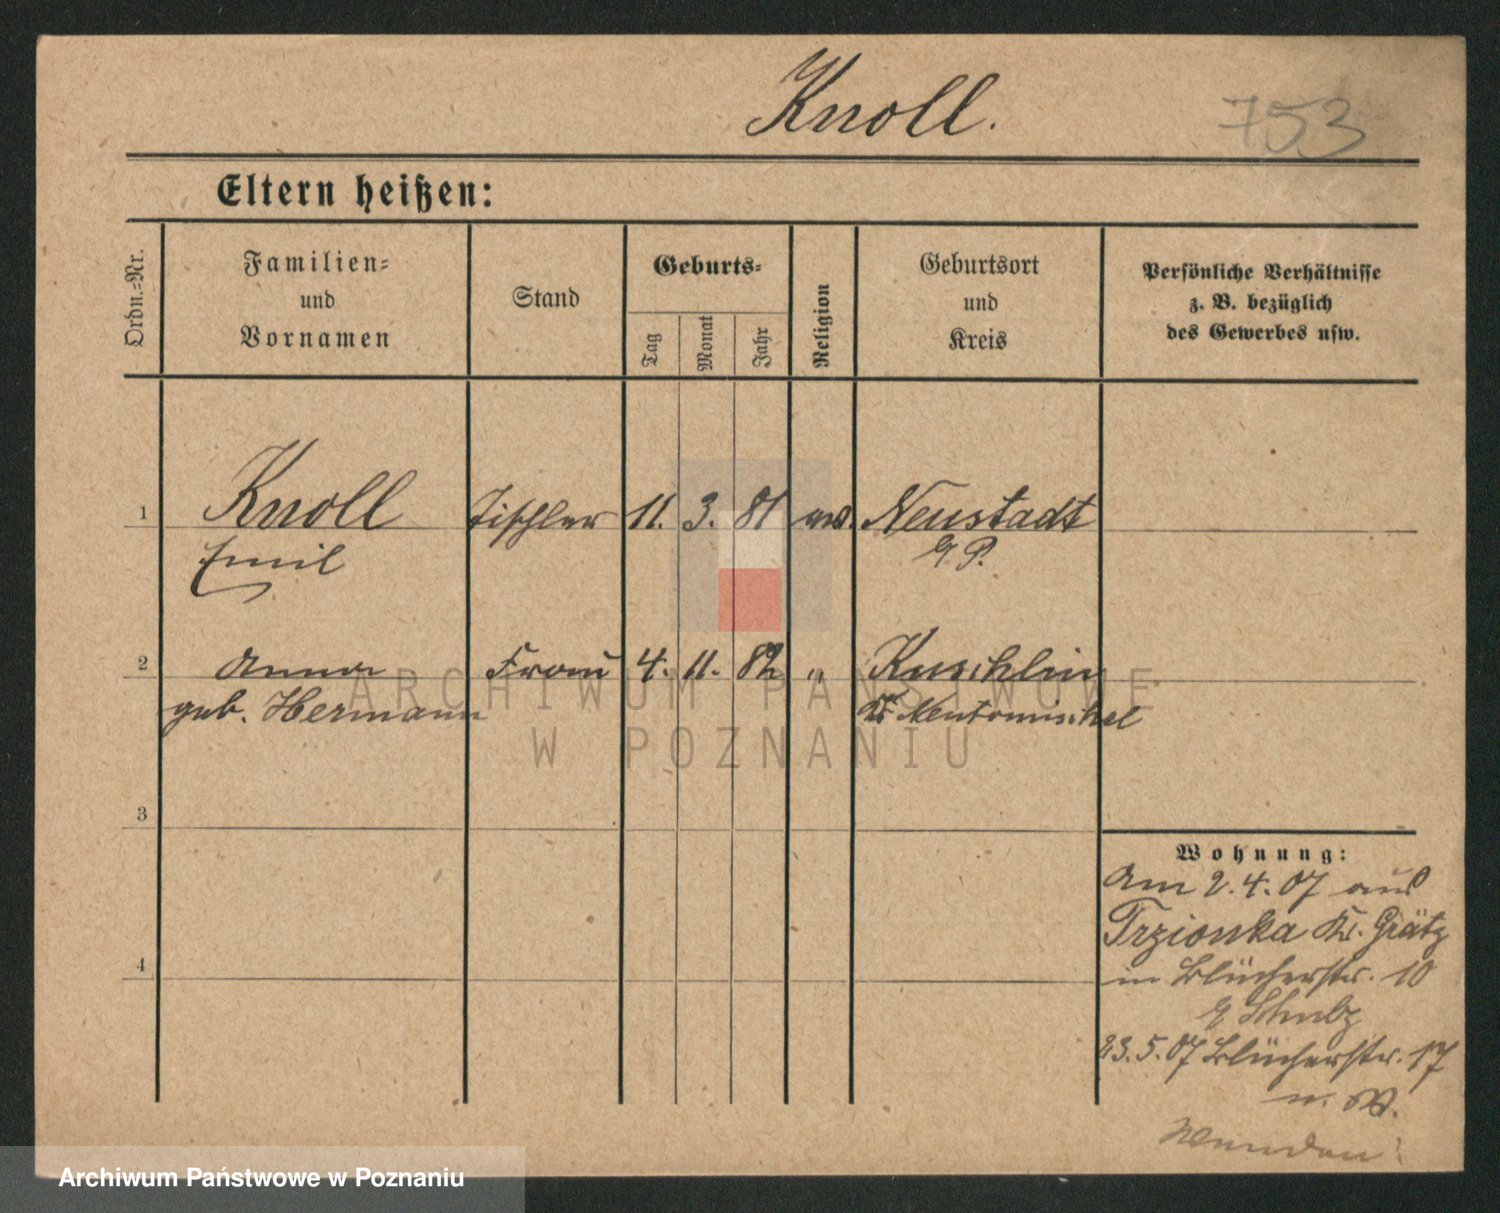 Knoll.
753
Eltern heißen:
Ordn.=Nr.
Familien=
und
Vornamen
Stand
Geburts=
Tag
Monat
Jahr
Religion
Geburtsort
und
Kreis
Persönliche Verhältnisse
z. B. bezüglich
des Gewerbes usw.
1
Knoll Tischler 11. 3. 81 ev. Neustadt
Emil
2
Anna Frau 4. 11. 82 " Kuschlin
geb. Hermann Kr Neutomischel
3
4
Wohnung:
Am 2.4.07 aus
Trzionka Kr. Grätz
in Blücherstr. 10
b Schulz
23.5.07 Blücherstr. 17
ARCHIWUM PAŃSTWOWE
W POZNANIU
Archiwum Państwowe w Poznaniu